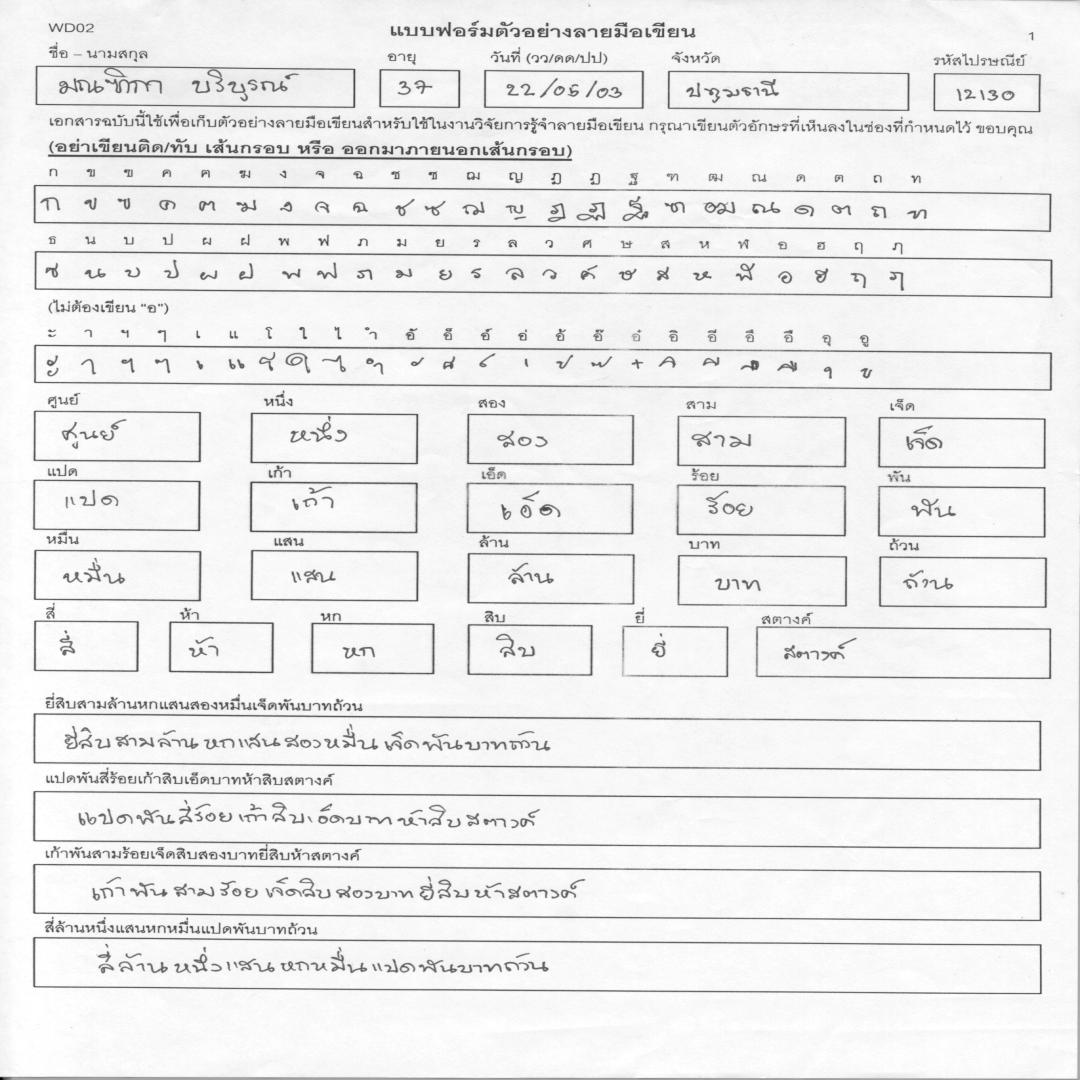 WD02
แบบฟอร์มตัวอย่างลายมือเขียน
1
ชื่อ – นามสกุล อายุ วันที่ (วว/ดด/ปป) จังหวัด รหัสไปรษณีย์
มณฑิกา บริบูรณ์ 37 22/05/03 ปทุมธานี 12130
เอกสารฉบับนี้ใช้เพื่อเก็บตัวอย่างลายมือเขียนสำหรับใช้ในงานวิจัยการรู้จำลายมือเขียน กรุณาเขียนตัวอักษรที่เห็นลงในช่องที่กำหนดไว้ ขอบคุณ
(อย่าเขียนติด/ทับ เส้นกรอบ หรือ ออกมาภายนอกเส้นกรอบ)
ก ข ฃ ค ฅ ฆ ง จ ฉ ช ซ ฌ ญ ฎ ฏ ฐ ฑ ฒ ณ ด ต ถ ท
ก ข ฃ ค ฅ ฆ ง จ ฉ ช ซ ฌ ญ ฎ ฏ ฐ ฑ ฒ ณ ด ต ถ ท
ธ น บ ป ผ ฝ พ ฟ ภ ม ย ร ล ว ศ ษ ส ห ฬ อ ฮ ฤ ฦ
ธ น บ ป ผ ฝ พ ฟ ภ ม ย ร ล ว ศ ษ ส ห ฬ อ ฮ ฤ ฦ
(ไม่ต้องเขียน "อ")
ะ า ฯ ๆ เ แ โ ใ ไ ำ อั อ็ อ์ อ่ อ้ อ๊ อ๋ อิ อี อึ อื อุ อู
ะ า ฯ ๆ เ แ โ ใ ไ ำ ั ็ ์ ่ ้ ๊ ๋ ิ ี ึ ื ุ ู
ศูนย์ หนึ่ง สอง สาม เจ็ด
ศูนย์ หนึ่ง สอง สาม เจ็ด
แปด เก้า เอ็ด ร้อย พัน
แปด เก้า เอ็ด ร้อย พัน
หมื่น แสน ล้าน บาท ถ้วน
หมื่น แสน ล้าน บาท ถ้วน
สี่ ห้า หก สิบ ยี่ สตางค์
สี่ ห้า หก สิบ ยี่ สตางค์
ยี่สิบสามล้านหกแสนสองหมื่นเจ็ดพันบาทถ้วน
ยี่สิบสามล้านหกแสนสองหมื่นเจ็ดพันบาทถ้วน
แปดพันสี่ร้อยเก้าสิบเอ็ดบาทห้าสิบสตางค์
แปดพันสี่ร้อยเก้าสิบเอ็ดบาทห้าสิบสตางค์
เก้าพันสามร้อยเจ็ดสิบสองบาทยี่สิบห้าสตางค์
เก้าพันสามร้อยเจ็ดสิบสองบาทยี่สิบห้าสตางค์
สี่ล้านหนึ่งแสนหกหมื่นแปดพันบาทถ้วน
สี่ล้านหนึ่งแสนหกหมื่นแปดพันบาทถ้วน